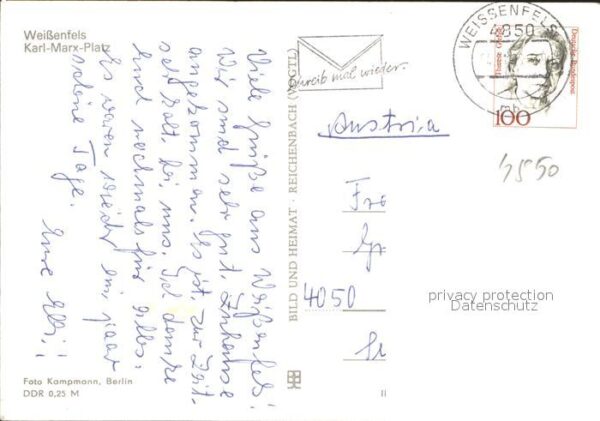 Weißenfels
Karl-Marx-Platz
Viele Grüße aus Weißenfels!
Wir sind sehr gut Zuhause
angekommen. Es ist zur Zeit
sehr kalt bei uns. Ich danke
Euch nochmals für alles.
Es waren wieder ein paar
schöne Tage.
Eure Elli!
Foto Kampmann, Berlin
DDR 0,25 M
BILD UND HEIMAT · REICHENBACH (VOGTL)
II
Schreib mal wieder
WEISSENFELS
4850
mb
Deutsche Bundespost
100
Austria
4550
4050
privacy protection
Datenschutz